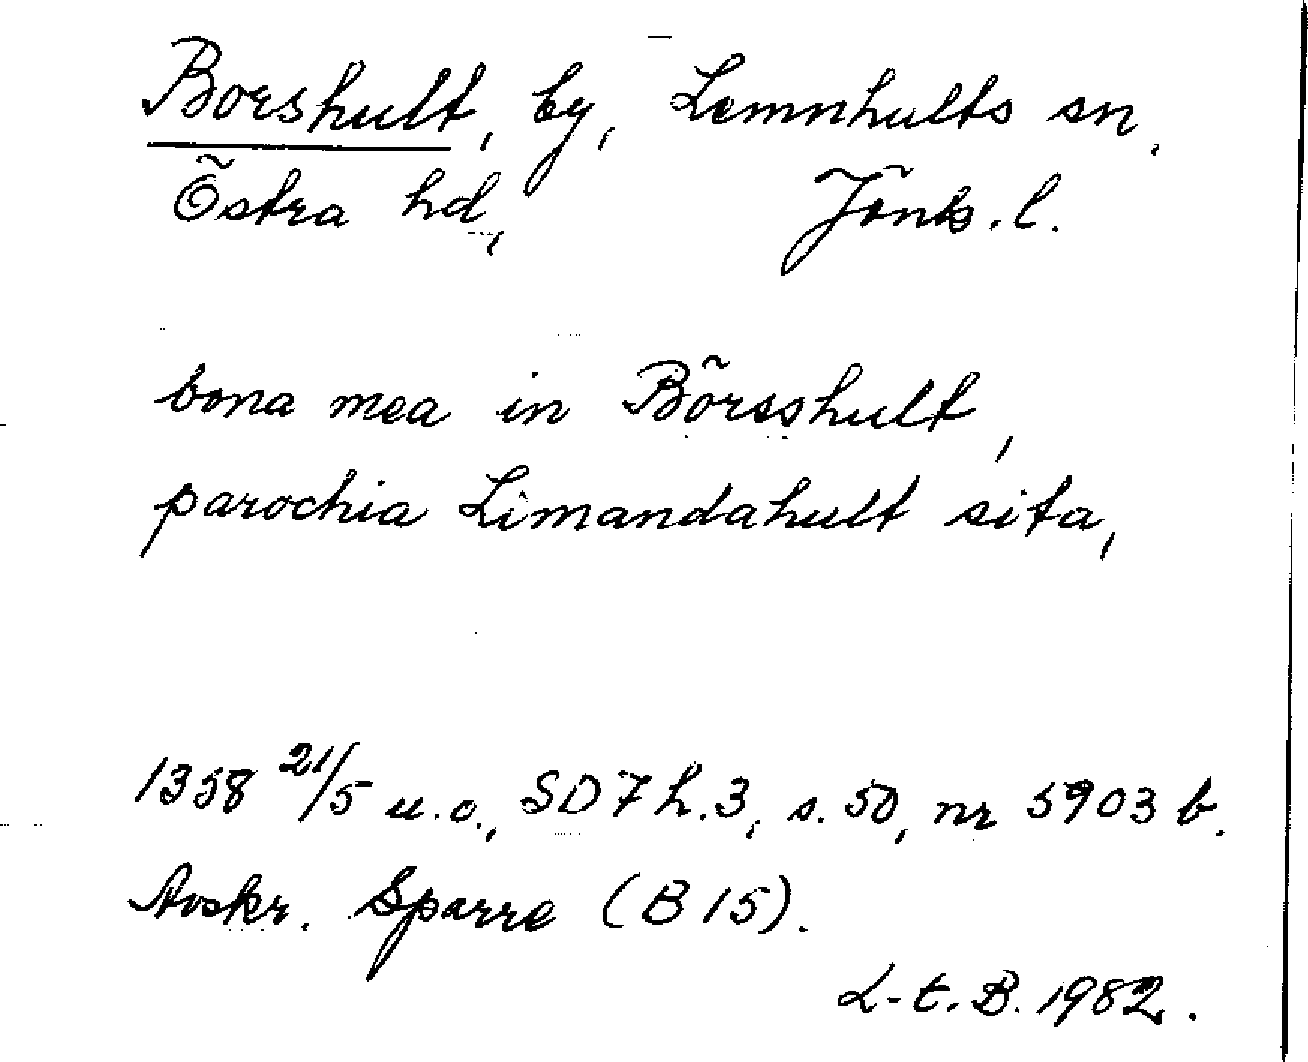 Borshult, by, Lemnhults sn.
Östra hd, Jönk.l.
bona mea in Börsshult,
parochia Limandahult sita,
1358 21/5 u.o., SD 7 h.3, s. 50, nr 5903 b.
Avskr. Sparre (B 15).
L-t. B. 1982.